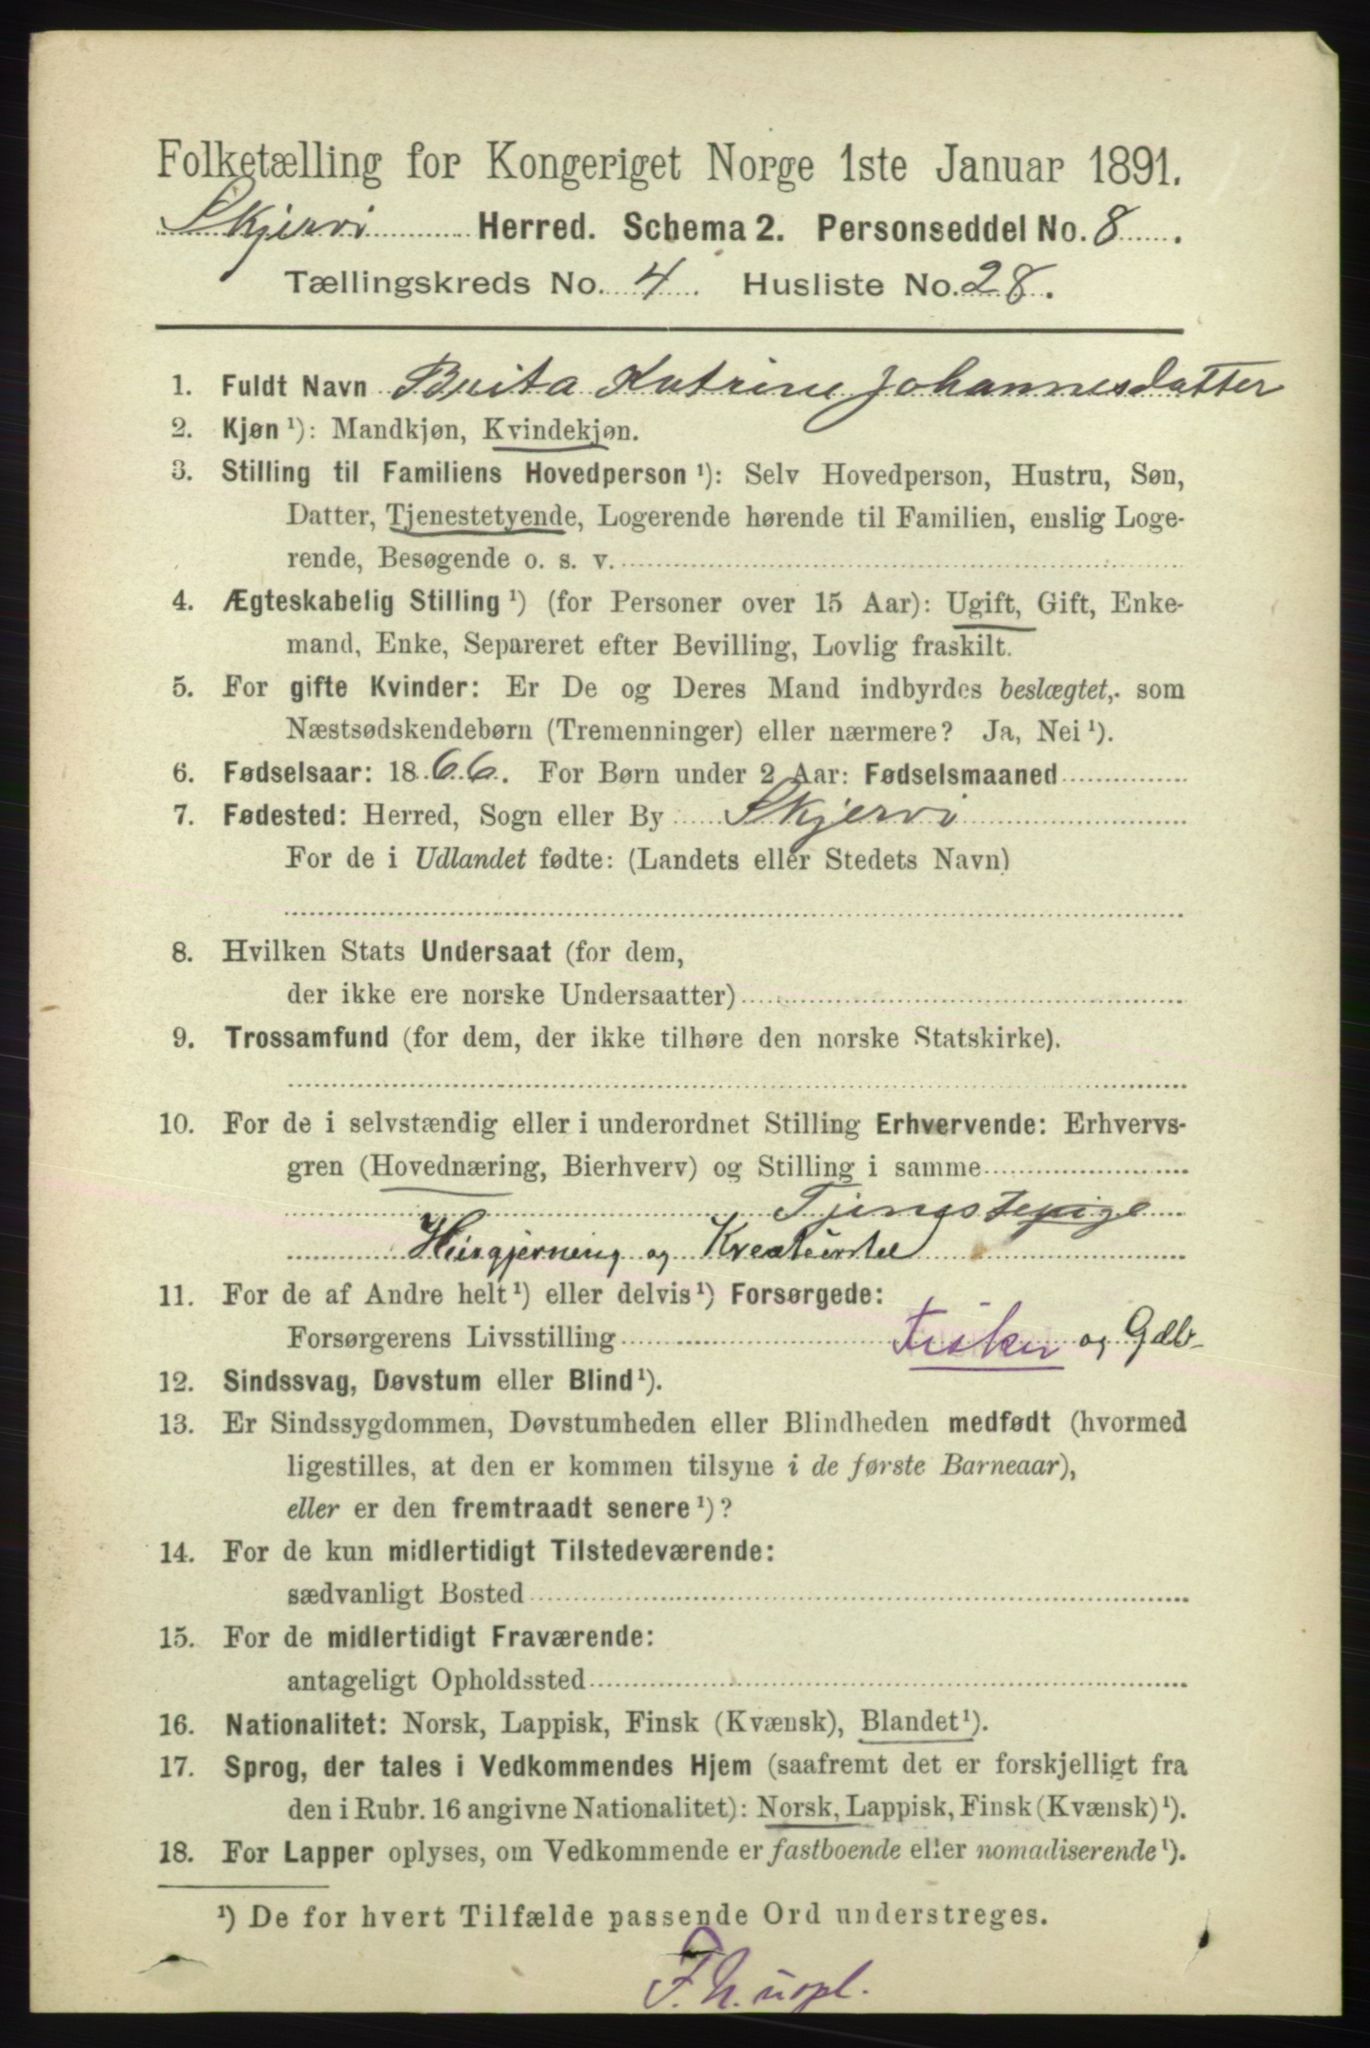 Folketælling for Kongeriget Norge 1ste Januar 1891.
Skjervi Herred. Schema 2. Personseddel No. 8.
Tællingskreds No. 4. Husliste No. 28.
1. Fuldt Navn Berita Katrine Johannesdatter
2. Kjøn ¹): Mandkjøn, Kvindekjøn.
3. Stilling til Familiens Hovedperson ¹): Selv Hovedperson, Hustru, Søn,
Datter, Tjenestetyende, Logerende hørende til Familien, enslig Loge-
rende, Besøgende o. s. v.
4. Ægteskabelig Stilling ¹) (for Personer over 15 Aar): Ugift, Gift, Enke-
mand, Enke, Separeret efter Bevilling, Lovlig fraskilt.
5. For gifte Kvinder: Er De og Deres Mand indbyrdes beslægtet, som
Næstsødskendebørn (Tremenninger) eller nærmere? Ja, Nei ¹).
6. Fødselsaar: 1866. For Børn under 2 Aar: Fødselsmaaned
7. Fødested: Herred, Sogn eller By Skjervi
For de i Udlandet fødte: (Landets eller Stedets Navn)
8. Hvilken Stats Undersaat (for dem,
der ikke ere norske Undersaatter)
9. Trossamfund (for dem, der ikke tilhøre den norske Statskirke).
10. For de i selvstændig eller i underordnet Stilling Erhvervende: Erhvervs-
gren (Hovednæring, Bierhverv) og Stilling i samme
Tjenestepige
Husgjerning og Kreaturstel
11. For de af Andre helt ¹) eller delvis ¹) Forsørgede:
Forsørgerens Livsstilling Fisker og
12. Sindssvag, Døvstum eller Blind ¹).
13. Er Sindssygdommen, Døvstumheden eller Blindheden medfødt (hvormed
ligestilles, at den er kommen tilsyne i de første Barneaar),
eller er den fremtraadt senere ¹)?
14. For de kun midlertidigt Tilstedeværende:
sædvanligt Bosted
15. For de midlertidigt Fraværende:
antageligt Opholdssted
16. Nationalitet: Norsk, Lappisk, Finsk (Kvænsk), Blandet ¹).
17. Sprog, der tales i Vedkommendes Hjem (saafremt det er forskjelligt fra
den i Rubr. 16 angivne Nationalitet): Norsk, Lappisk, Finsk (Kvænsk) ¹).
18. For Lapper oplyses, om Vedkommende er fastboende eller nomadiserende ¹).
¹) De for hvert Tilfælde passende Ord understreges.